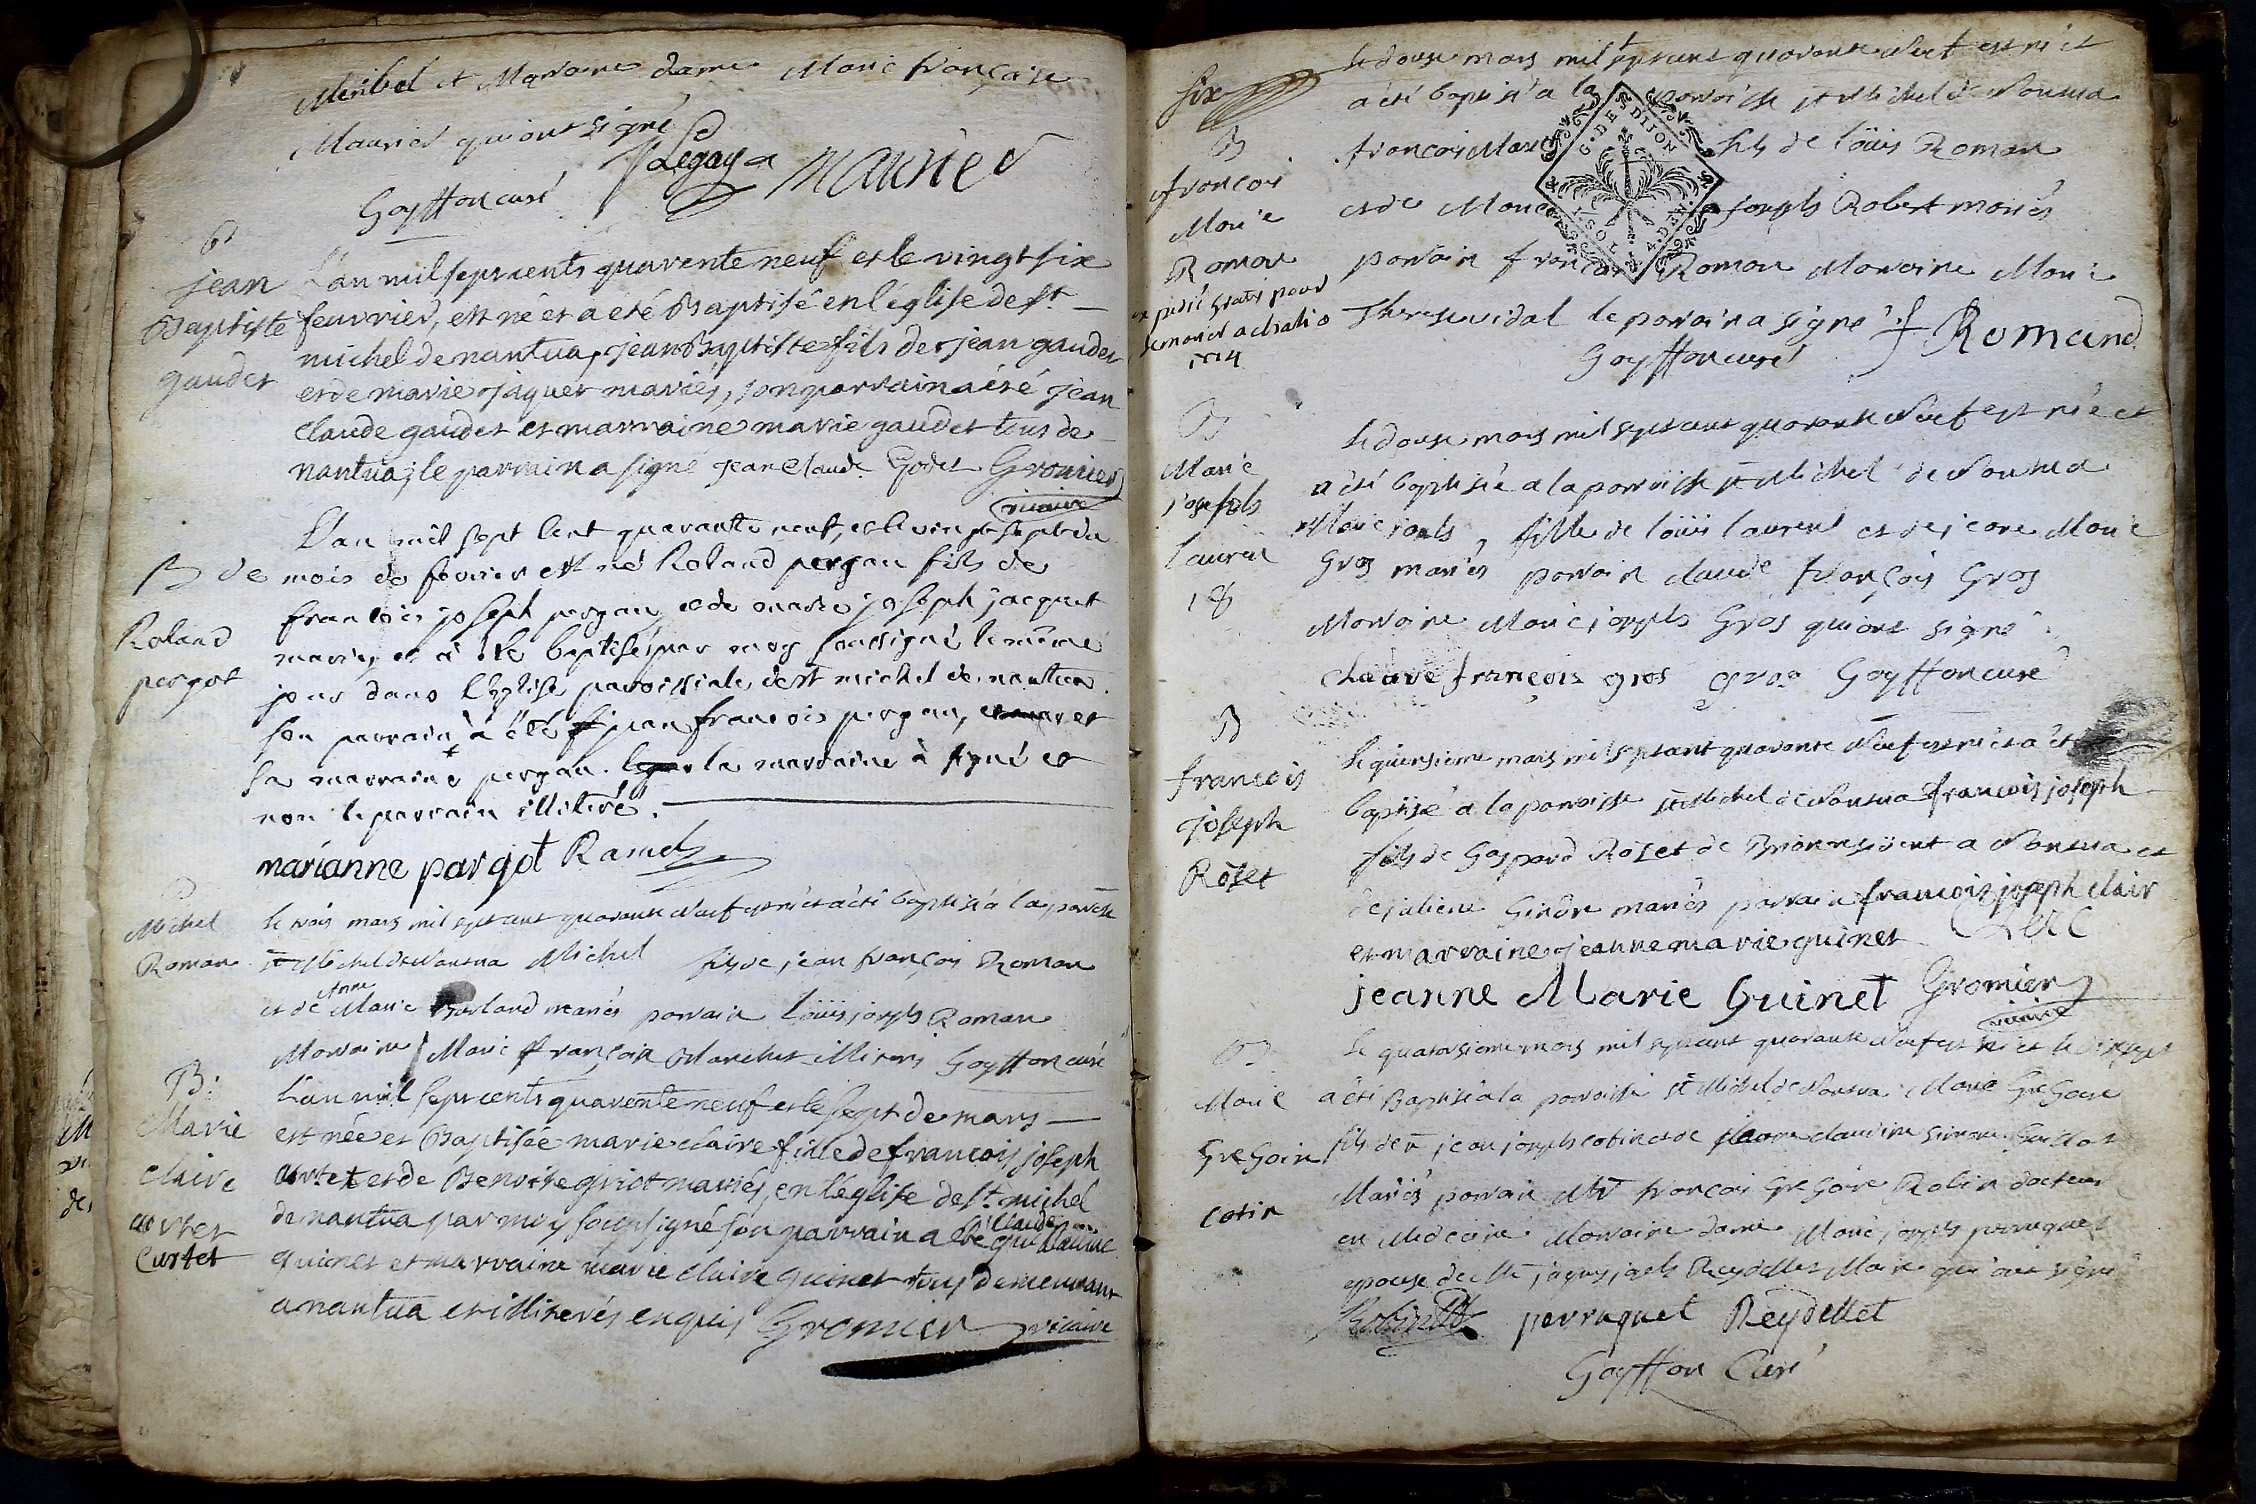 Meribel et Marraine dame Marie françoise
Maurier qui ont signé
Legay Maurier
Goyffon curé
B
jean
Baptiste
gaudet
L'an mil sept cents quarente neuf et le vingt six
feuvrier, est né et a été Baptisé en l'église de st
michel de nantua, jean Baptiste fils de jean gaudet
et de marie jaquet mariés, son parrain a été jean
claude gaudet et marraine marie gaudet tous de
nantua; le parrain a signé jean Claude Godet Gromier
vicaire
B de
Roland
pergot
L'an mil sept cent quarante neuf, et le vingt sept du
mois de fevrier est né Roland pergau fils de
francois joseph pergau, et de marie joseph jacquet
mariés, et a été baptisé par moy soussigné le même
jour dans l'Eglise paroissiale de st michel de nantua.
son parrain à été jean francois pergau, et
sa marraine pergau. la marraine à signé et
non le parrain illitéré.
marianne pargot Ramel
Michel
Roman
le trois mars mil sept cent quarante neuf est né et a été baptisé à la paroisse
st Michel de Nantua Michel fils de jean françois Roman
Anne
et de Marie Borland mariés parrain loüis joseph Roman
Marraine Marie françoise illiterés Goyffon curé
B:
Marie
claire
curtet
Curtet
L'an mil sept cents quarente neuf et le sept de mars
est née et Baptisée marie claire fille de francois joseph
curtet et de Benoite griot mariés, en l'église de st michel
de nantua par moy soussigné son parrain a été claude
guinet et marraine marie claire guinet tous demeurant
a nantua et illiterés enquis Gromier vicaire
six
B
françois
Marie
Roman
expedié gratis pour
1774
le douse mars mil sept cent quarante neuf est né et
a été baptisé a la paroisse st Michel de Nantua
françois Marie fils de loüis Roman
et de Marie joseph Robert mariés
parrain françois Roman Marraine Marie
Therese vidal le parrain a signé f Romand
Goyffon curé
G. DE DIJON
B
Marie
josephs
laurent
18
le douse mars mil sept cent quarante neuf est née et
a été baptisée a la paroisse st Michel de Nantua
Marie josephs, fille de loüis laurent et de jeane Marie
Gros mariés parrain claude françois Gros
Marraine Marie josephs Gros qui ont signé
claude françois gros gros Goyffon curé
B
francois
joseph
Roset
le quinsieme mars mil sept cent quarante neuf est né et a été
baptisé a la paroisse st Michel de Nantua francois joseph
fils de Gaspard Roset de Brion residant a Nantua et
de juliene Gindre mariés parrain francois joseph clair
Clerc
et marraine jeanne marie guinet
jeanne Marie Guinet Gromier
vicaire
B
Marie
Gregoire
cotin
le quatorsieme mars mil sept cent quarante neuf est né et le dix sept
a été Baptisé a la paroisse st Michel de Nantua Marie Gregoire
fils de jean joseph cotin et de claudine simone Guillot
Mariés parrain Mr françois Gregoire Robin docteur
en Medecine Marraine dame Marie josephs perruquet
epouse de Mr jaques josephs Reydellet Maire qui ont signé
Robin perruquet Reydellet
Goyffon Curé